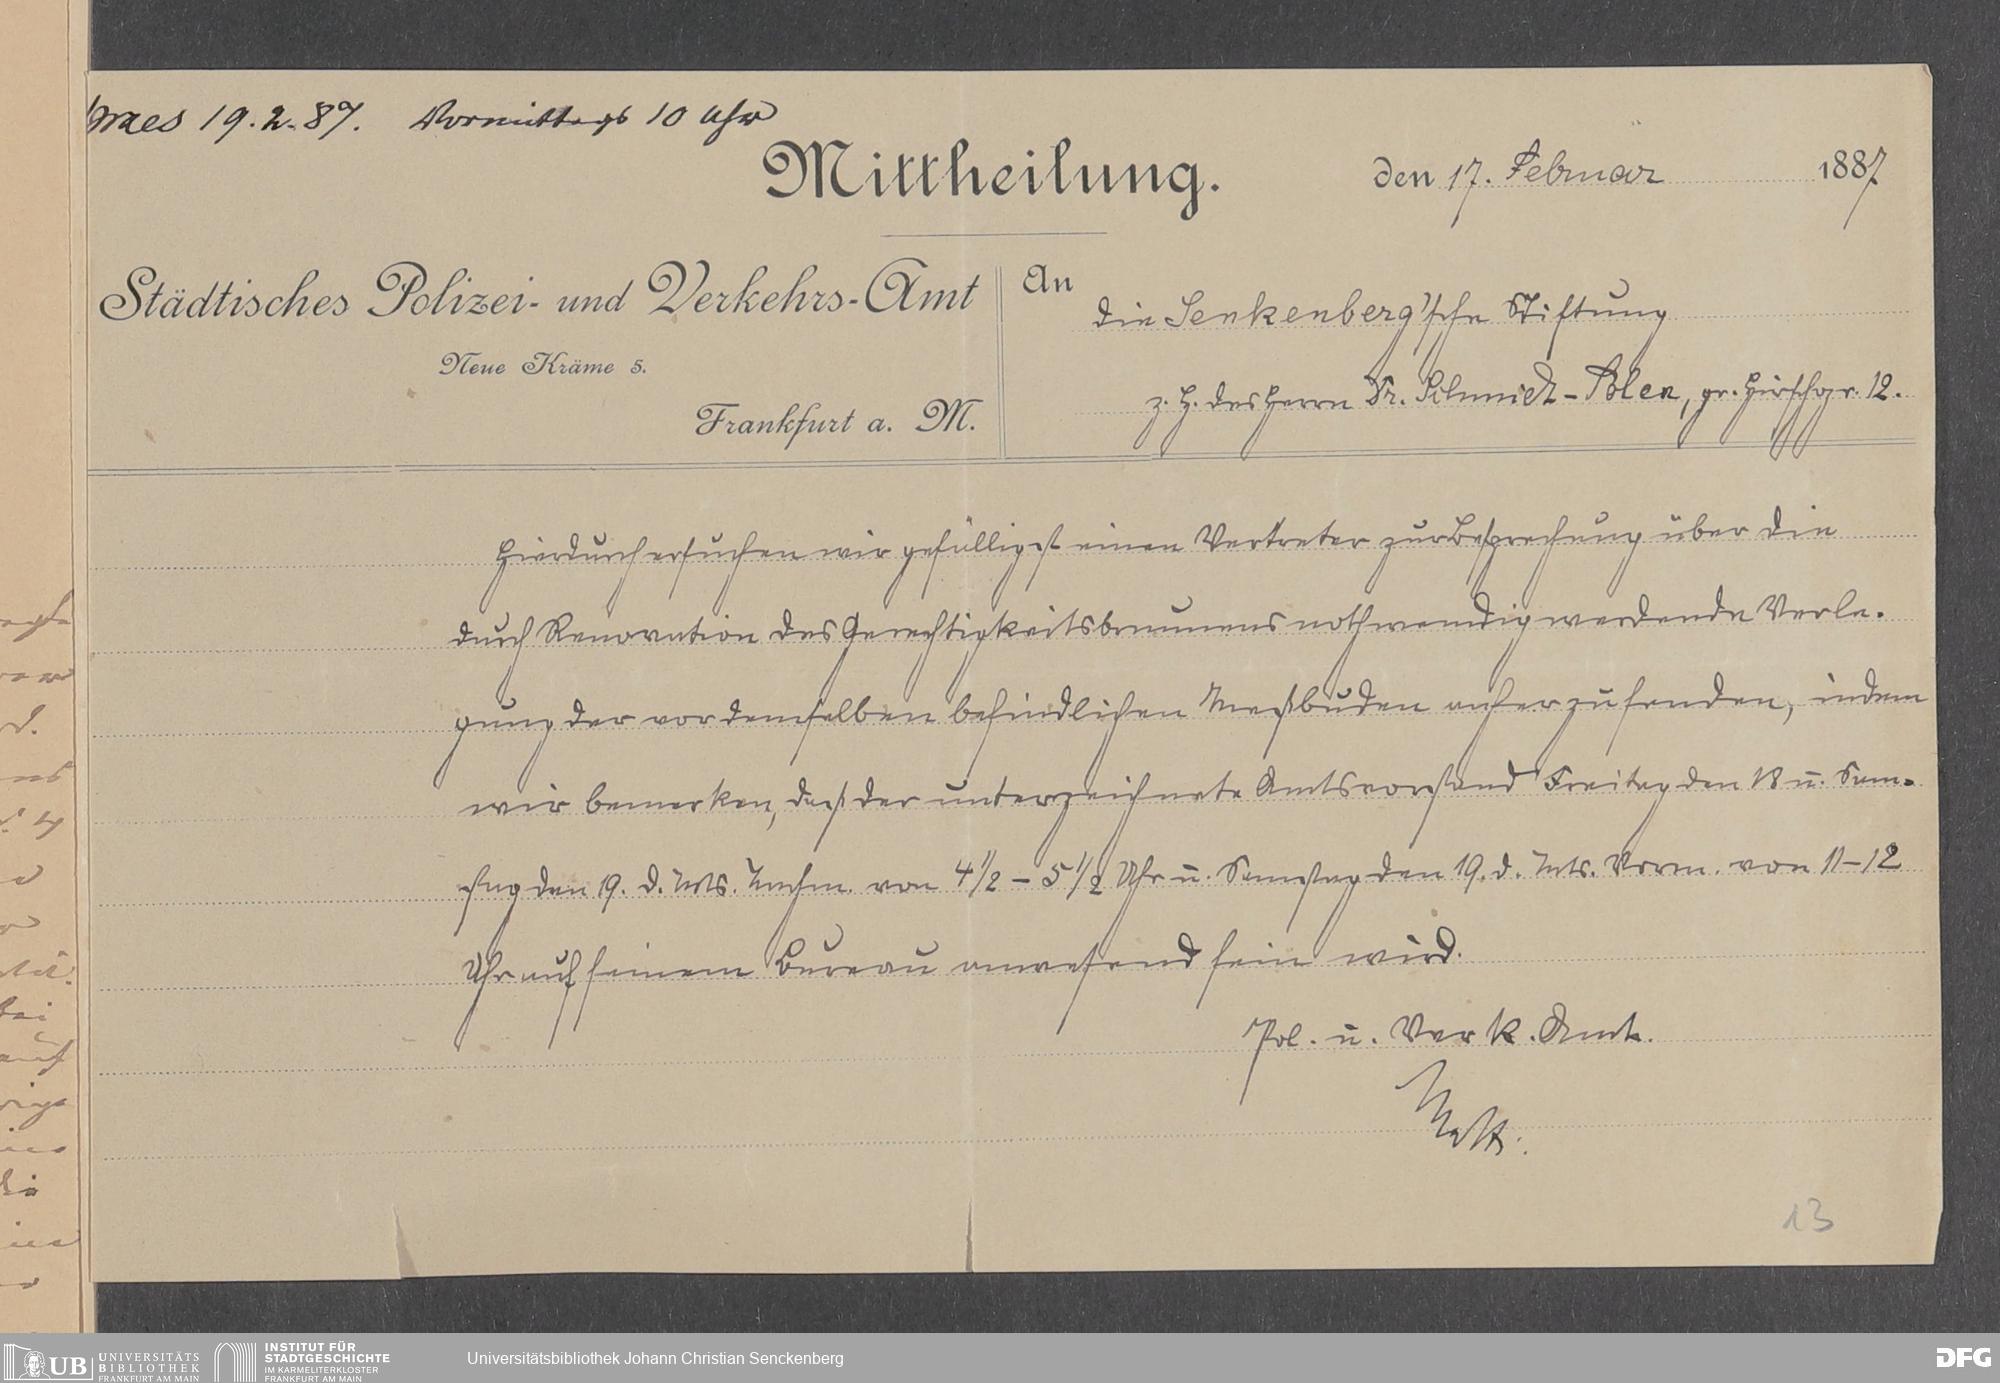 praes 19.2.87. Vormittags 10 Uhr
Mittheilung.
den 17. Februar 1887
Städtisches Polizei- und Verkehrs-Amt
Neue Kräme 5.
Frankfurt a. M.
An
die Senkenberg'sche Stiftung
z. H. des Herrn Dr. Schmidt-Polex, gr. Hirschgr. 12.
Hierdurch ersuchen wir gefälligst einen Vertreter zur Besprechung über die
durch Renovation des Gerechtigkeitsbrunnens nothwendig werdende Verle-
gung der vor demselben befindlichen Meßbuden anher zu senden, indem
wir bemerken, daß der unterzeichnete Amtsvorstand Freitag den 18 u. Sam-
stag den 19. d. Mts. Nachm. von 4 1/2 – 5 1/2 Uhr u. Samstag den 19. d. Mts. Vorm. von 11–12
Uhr auf seinem Bureau anwesend sein wird.
Pol. u. Verk. Amt.
13
UB UNIVERSITÄTS
BIBLIOTHEK
FRANKFURT AM MAIN
INSTITUT FÜR
STADTGESCHICHTE
IM KARMELITERKLOSTER
FRANKFURT AM MAIN
Universitätsbibliothek Johann Christian Senckenberg
DFG